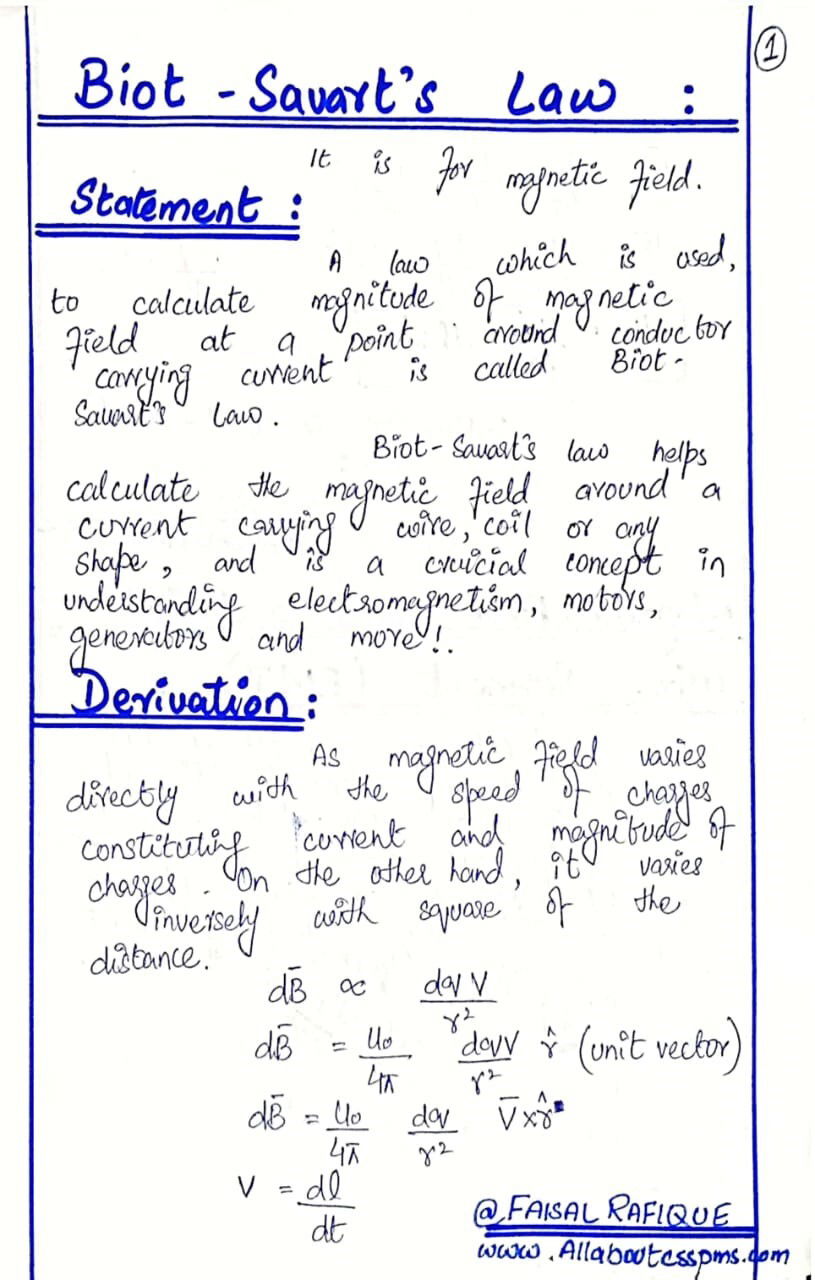 ①
Biot - Savart's Law :
It is for magnetic field.
Statement :
A law which is used,
to calculate magnitude of magnetic
field at a point around conductor
carrying current is called Biot-
Savart's Law.
Biot-Savart's law helps
calculate the magnetic field around a
current carrying wire, coil or any
shape, and is a cruicial concept in
understanding electromagnetism, motors,
generators and more!.
Derivation :
As magnetic field varies
directly with the speed of charges
constituting current and magnitude of
charges. On the other hand, it varies
inversely with square of the
distance.
dB̄ ∝ dqV / r²
dB̄ = μ₀/4π dqV/r² r̂ (unit vector)
dB̄ = μ₀/4π dq/r² V̄ × r̂
V = dl/dt
@FAISAL RAFIQUE
www.Allaboutcsspms.com